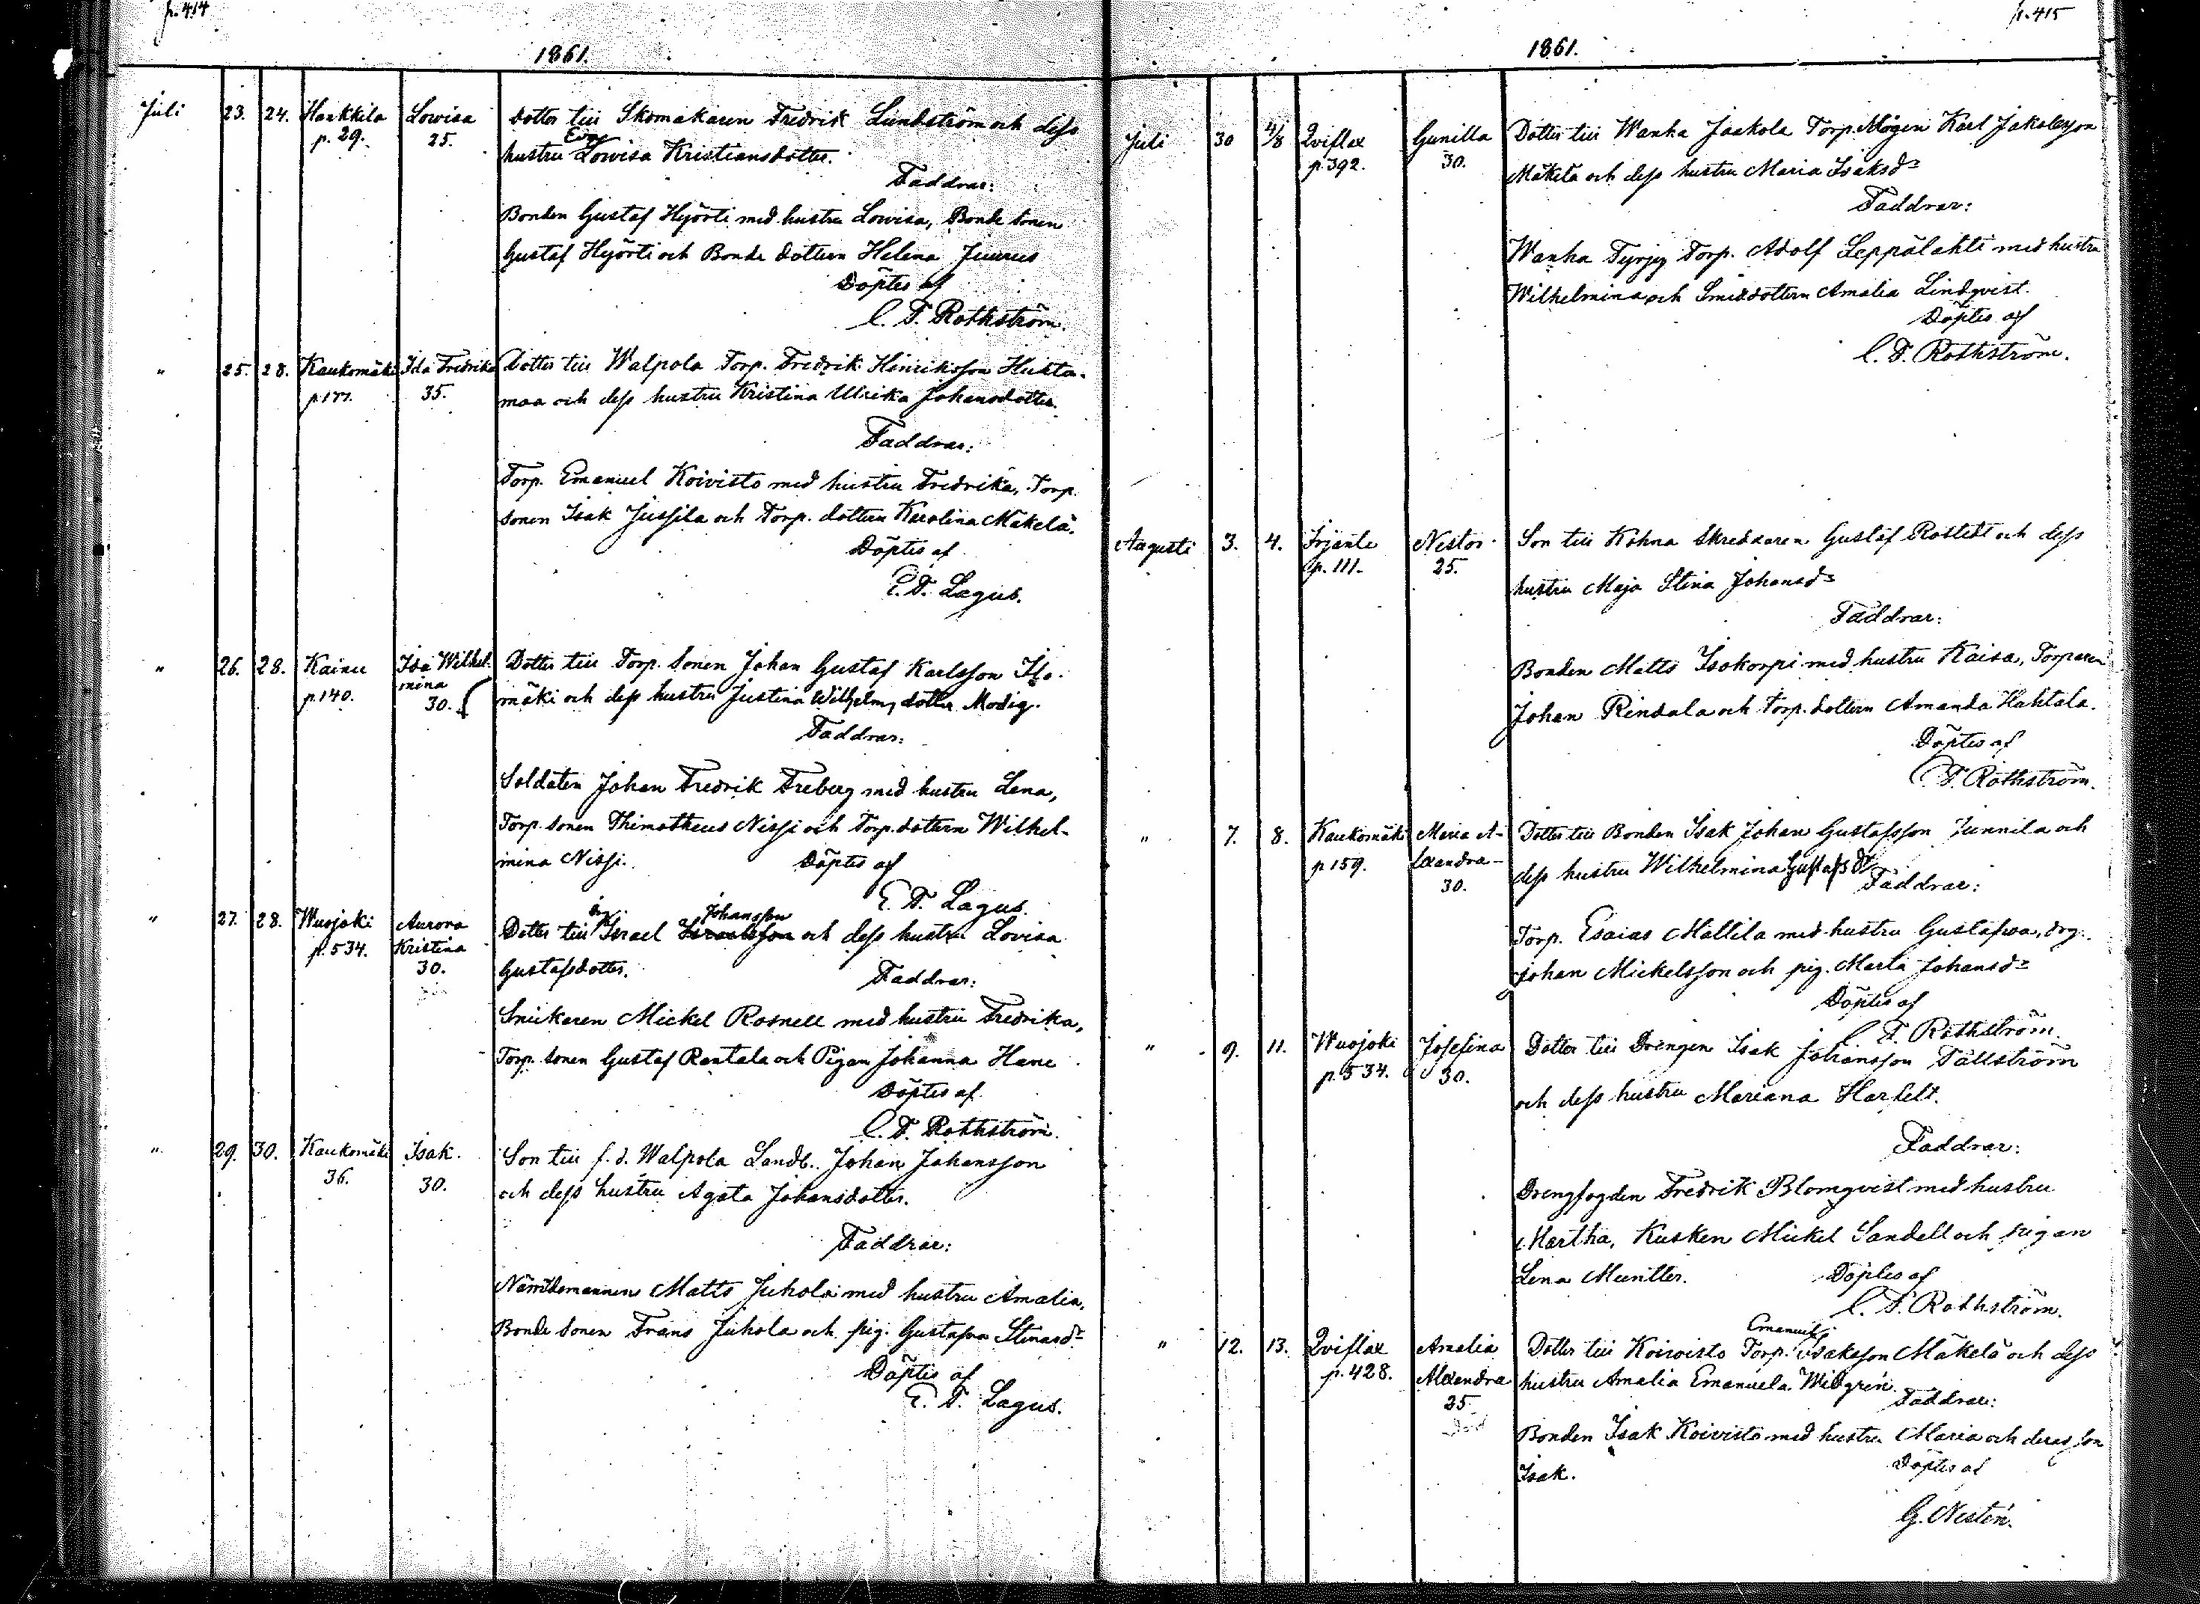 p. 414
1861.
Juli 23. 24. Hankkila Lovisa Dotter till Skomakaren Fredrik Lundström och dess
p. 29. 25. hustru Eva Lovisa Kristiansdotter.
Faddrar:
Bonden Gustaf Hyörti med hustru Lovisa, Bonde sonen
Gustaf Hyörti och Bonde dottern Helena Junnus
Döptes af
C. F. Rothström.
" 25. 28. Kaukomäki Ida Fredrika Dotter till Walpola Torp. Fredrik Henriksson Huhta-
p. 177. 35. maa och dess hustru Kristina Ulrika Johansdotter.
Faddrar:
Torp. Emanuel Koivisto med hustru Fredrika, Torp.
sonen Isak Jussila och Torp. dottern Karolina Mäkelä.
Döptes af
E. F. Lagus.
" 26. 28. Kainu Ida Wilhel- Dotter till Torp. sonen Johan Gustaf Karlsson Ilo-
p. 140. mina 30. mäki och dess hustru Justina Wilhelm, dotter Modig.
Faddrar:
Soldaten Johan Fredrik Freberg med hustru Lena,
Torp. sonen Thimotheus Nissi och Torp. dottern Wilhel-
mina Nissi. Döptes af
E. F. Lagus.
" 27. 28. Wuojoki Aurora Dotter till Israel Israelsson Johansson och dess hustru Lovisa
p. 534. Kristina 30. Gustafsdotter. Faddrar:
Snickaren Mickel Rosnell med hustru Fredrika,
Torp. sonen Gustaf Rantala och Pigan Johanna Hane
Döptes af
C. F. Rothström.
" 29. 30. Kaukomäki Isak. Son till f. d. Walpola Landb. Johan Johansson
36. 30. och dess hustru Agata Johansdotter.
Faddrar:
Nämndemannen Matts Juhola med hustru Amalia,
Bonde sonen Frans Juhola och pig. Gustafva Stinasdr
Döptes af
E. F. Lagus.
p. 415
1861.
Juli 30 4/8 Qviflax Gunilla Dotter till Wanha Jaakola Torp. Mågen Karl Jakobsson
p. 392. 30. Mäkelä och dess hustru Maria Isaksdr
Faddrar:
Wanha Tyrjy Torp. Adolf Leppälahti med hustru
Wilhelmina och Smeddottern Amalia Lindqvist.
Döptes af
C. F. Rothström.
Augusti 3. 4. Irjante Nestor. Son till Kohna Skreddaren Gustaf Rostedt och dess
p. 111. 25. hustru Maja Stina Johansdr
Faddrar:
Bonden Matts Isokorpi med hustru Kaisa, Torparen
Johan Rindala och Torp. dottern Amanda Hahtala.
Döptes af
C. F. Rothström.
" 7. 8. Kaukomäki Maria A- Dotter till Bonden Isak Johan Gustafsson Junnila och
p. 159. lexandra 30. dess hustru Wilhelmina Gustafsdr Faddrar:
Torp. Esaias Mattila med hustru Gustafva, drg.
Johan Mickelsson och pig. Marta Johansdr
Döptes af
C. F. Rothström.
" 9. 11. Wuojoki Josefina Dotter till Drengen Isak Johansson Tallström
p. 534. 30. och dess hustru Mariana Harfelt.
Faddrar:
Drengfogden Fredrik Blomqvist med hustru
Martha, Kusken Mickel Sandell och pigan
Lena Muntter. Döptes af
C. F. Rothström.
" 12. 13. Qviflax Amalia Dotter till Koivisto Torp. Emanuel Isaksson Mäkelä och dess
p. 428. Alexandra hustru Amalia Emanuela Widgrén.
25. Faddrar:
Bonden Isak Koivisto med hustru Maria och deras son
Isak. Döptes af
G. Nestén.